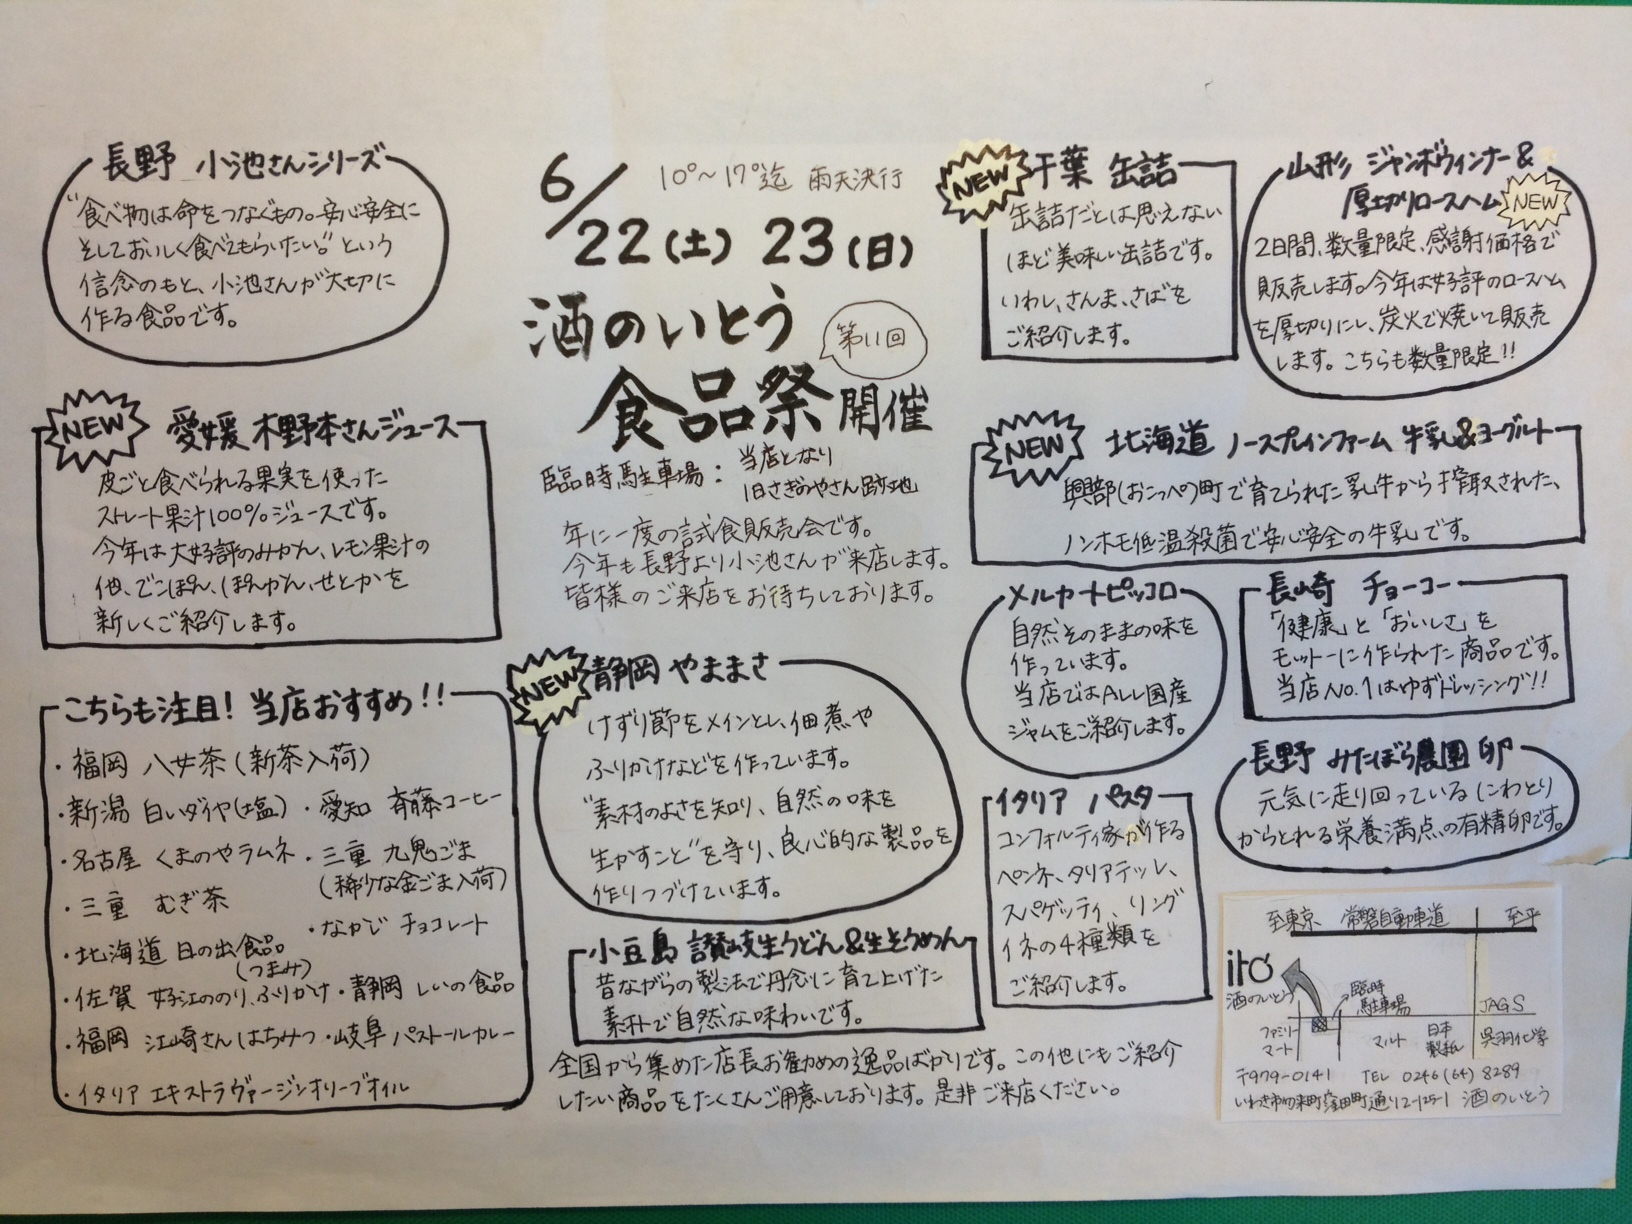 6/22(土) 23(日)
10°〜17°迄 雨天決行
酒のいとう
第11回
食品祭 開催
臨時駐車場： 当店となり
旧さぎのやさん跡地
年に一度の試食販売会です。
今年も長野より小池さんが来店します。
皆様のご来店をお待ちしております。
長野 小池さんシリーズ
"食べ物は命をつなぐもの。安心安全に
そしておいしく食べてもらいたい。"という
信念のもと、小池さんが大切に
作る食品です。
NEW 愛媛 木野本さんジュース
皮ごと食べられる果実を使った
ストレート果汁100%ジュースです。
今年は大好評のみかん、レモン果汁の
他、でこぽん、ぽんかん、せとかを
新しくご紹介します。
こちらも注目! 当店おすすめ!!
・福岡 八女茶(新茶入荷)
・新潟 白いダイヤ(塩) ・愛知 斉藤コーヒー
・名古屋 くまのやラムネ ・三重 九鬼ごま
(稀少な金ごま入荷)
・三重 むぎ茶
・なかじ チョコレート
・北海道 日の出食品
(つまみ)
・佐賀 好江ののり、ふりかけ ・静岡 しいの食品
・福岡 江崎さんはちみつ ・岐阜 パストールカレー
・イタリア エキストラヴァージンオリーブオイル
NEW 静岡 やままさ
けずり節をメインとし、佃煮や
ふりかけなどを作っています。
"素材のよさを知り、自然の味を
生かすこと"を守り、良心的な製品を
作りつづけています。
小豆島 讃岐生うどん&生そうめん
昔ながらの製法で丹念に育て上げた
素朴で自然な味わいです。
全国から集めた店長お勧めの逸品ばかりです。この他にもご紹介
したい商品をたくさんご用意しております。是非ご来店ください。
NEW 千葉 缶詰
缶詰だとは思えない
ほど美味しい缶詰です。
いわし、さんま、さばを
ご紹介します。
山形 ジャンボウィンナー&
厚切りロースハム NEW
2日間、数量限定、感謝価格で
販売します。今年は好評のロースハム
を厚切りにし、炭火で焼いて販売
します。こちらも数量限定!!
NEW 北海道 ノースプレインファーム 牛乳&ヨーグルト
興部(おこっぺ)町で育てられた乳牛から搾取された、
ノンホモ低温殺菌で安心安全の牛乳です。
メルカートピッコロ
自然そのままの味を
作っています。
当店ではALL国産
ジャムをご紹介します。
長崎 チョーコー
「健康」と「おいしさ」を
モットーに作られた商品です。
当店No.1はゆずドレッシング!!
長野 みたぼら農園 卵
元気に走り回っているにわとり
からとれる栄養満点の有精卵です。
イタリア パスタ
コンフォルティ家が作る
ペンネ、タリアテッレ、
スパゲッティ、リング
イネの4種類を
ご紹介します。
至東京 常磐自動車道 至平
itó
酒のいとう
臨時
駐車場
JAGS
ファミリー
マート
マルト
日本
製紙
呉羽化学
〒979-0141 TEL 0246(64)8289
いわき市勿来町窪田町通り2-125-1 酒のいとう